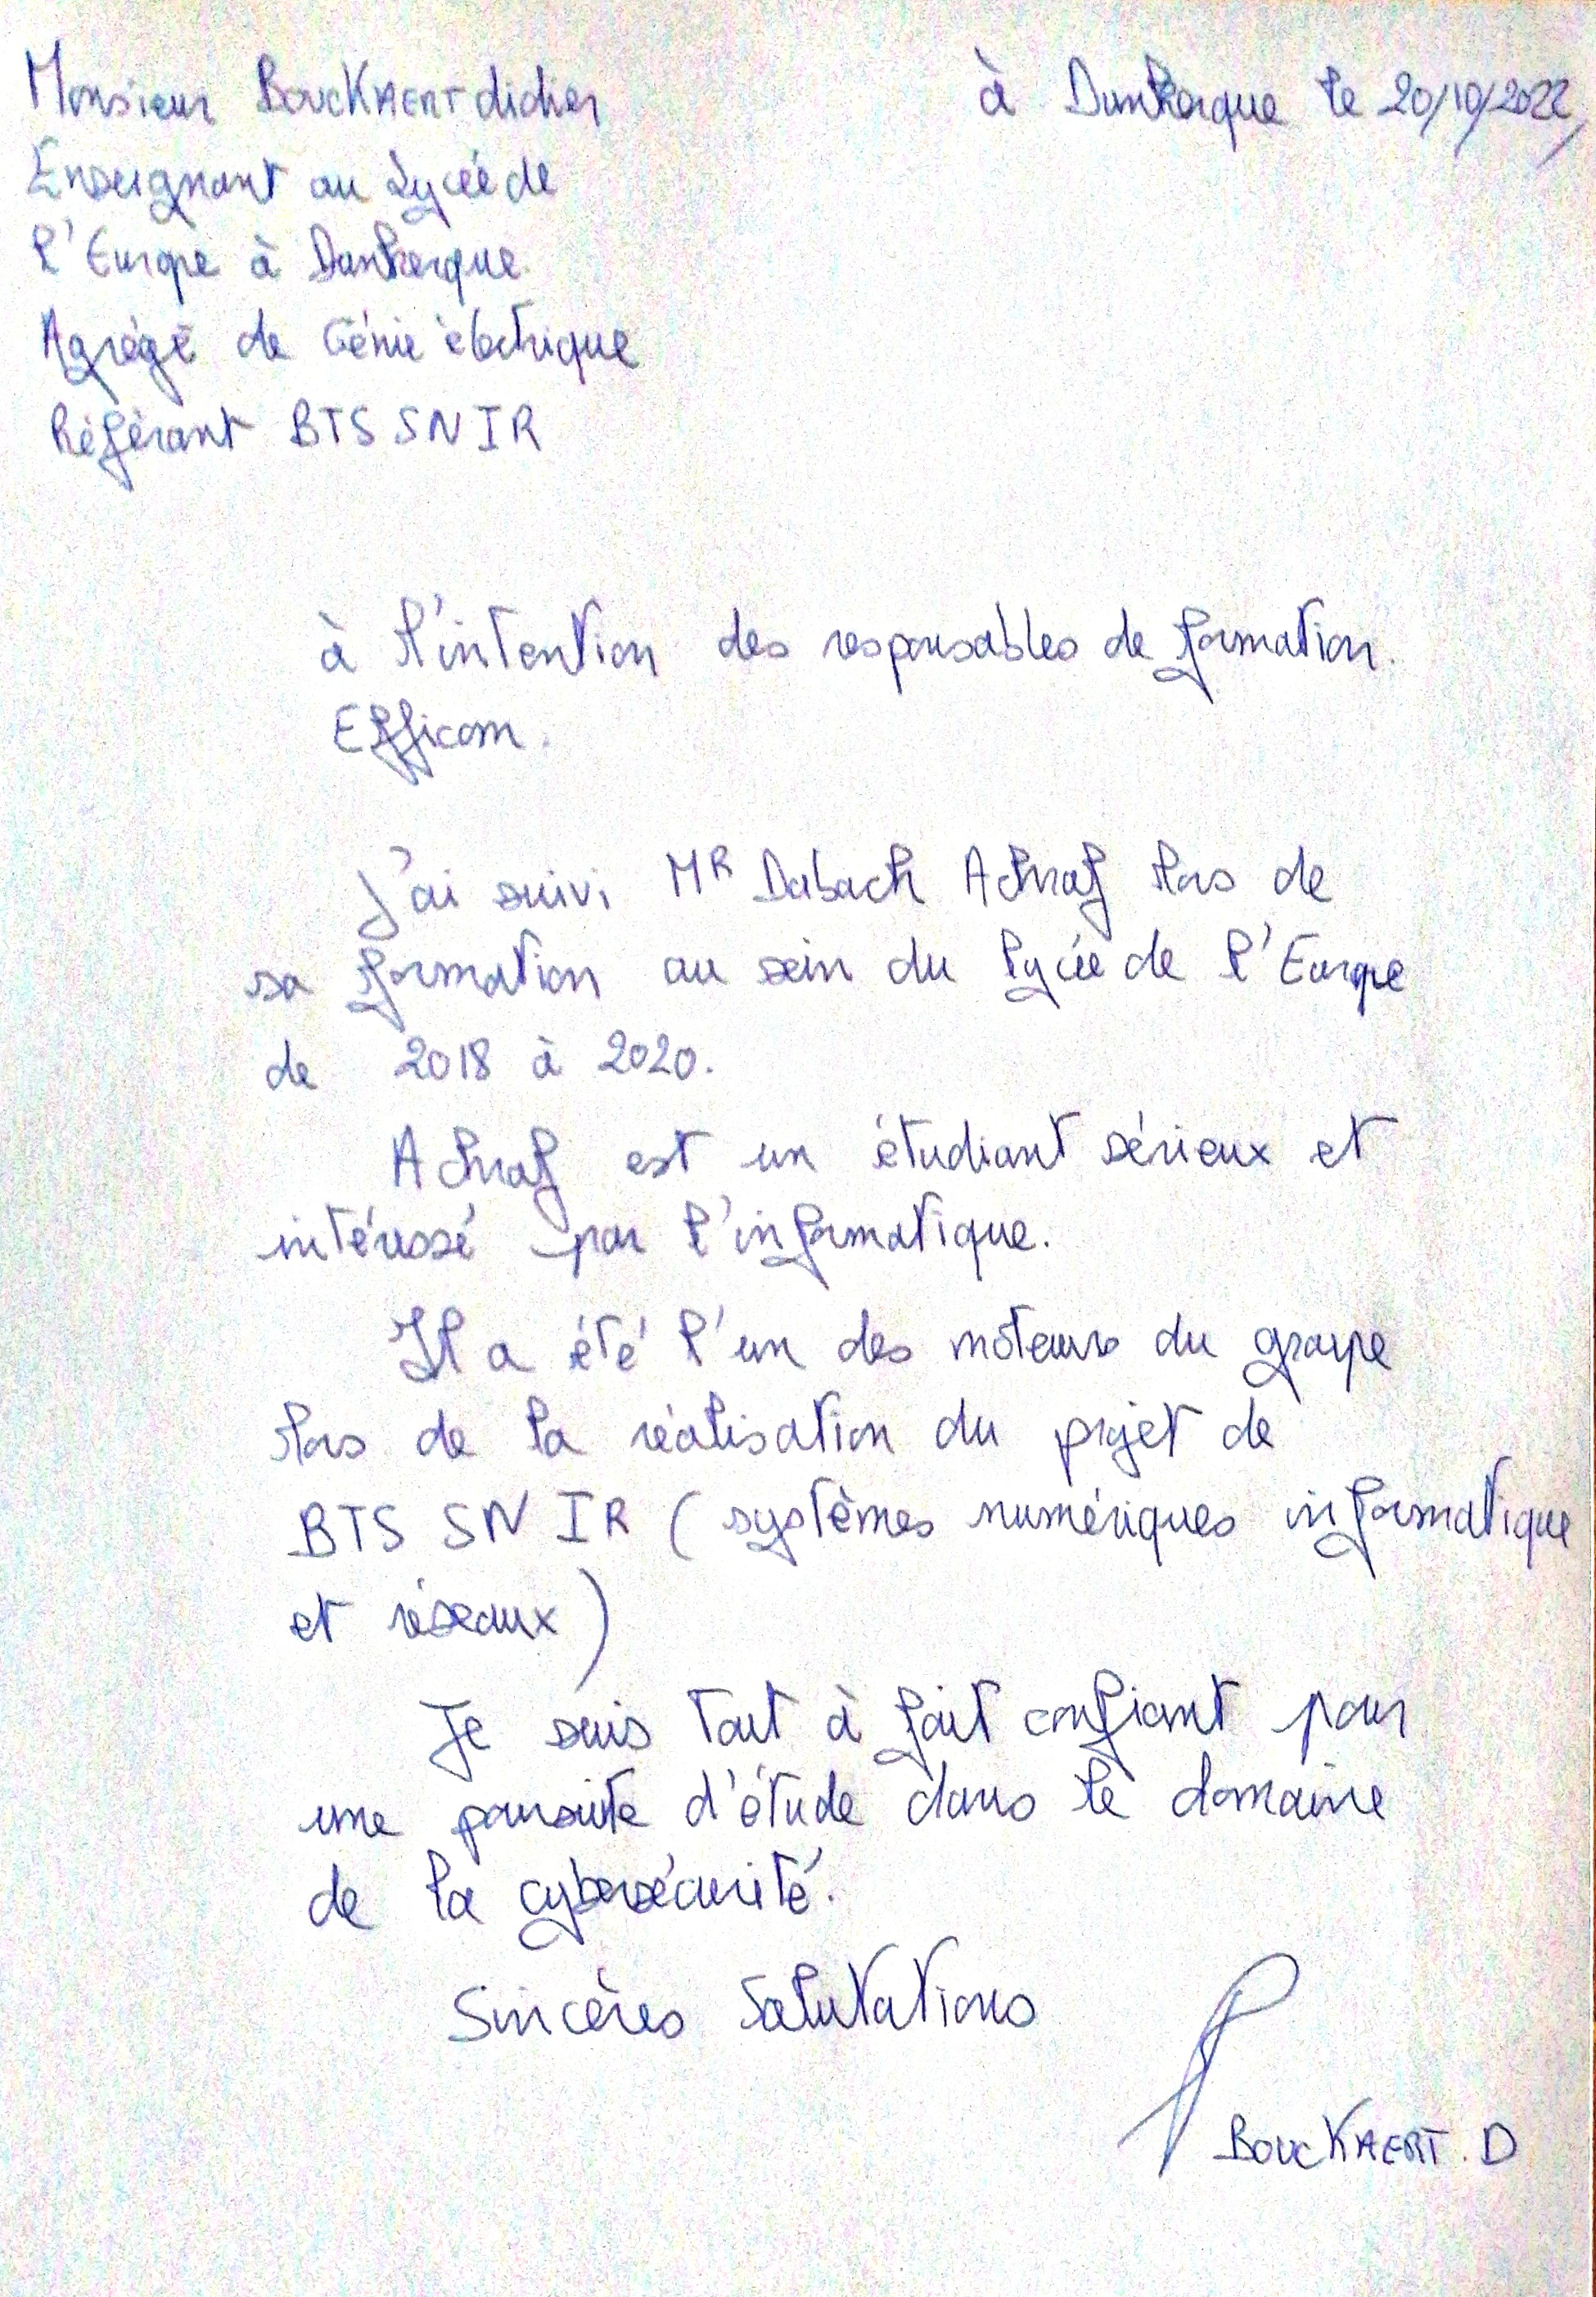 Monsieur BoucKAERT didier
à Dunkerque le 20/10/2022,
Enseignant au Lycée de
l'Europe à Dunkerque
Agrégé de Génie électrique
Référant BTS SN IR
à l'intention des responsables de formation.
Efficom.
J'ai suivi MR Dabach Achraf lors de
sa formation au sein du lycée de l'Europe
de 2018 à 2020.
Achraf est un étudiant sérieux et
intéressé par l'informatique.
Il a été l'un des moteurs du groupe
lors de la réalisation du projet de
BTS SN IR (systèmes numériques informatique
et réseaux)
Je suis tout à fait confiant pour
une poursuite d'étude dans le domaine
de la cybersécurité.
Sincères Salutations
BoucKAERT. D